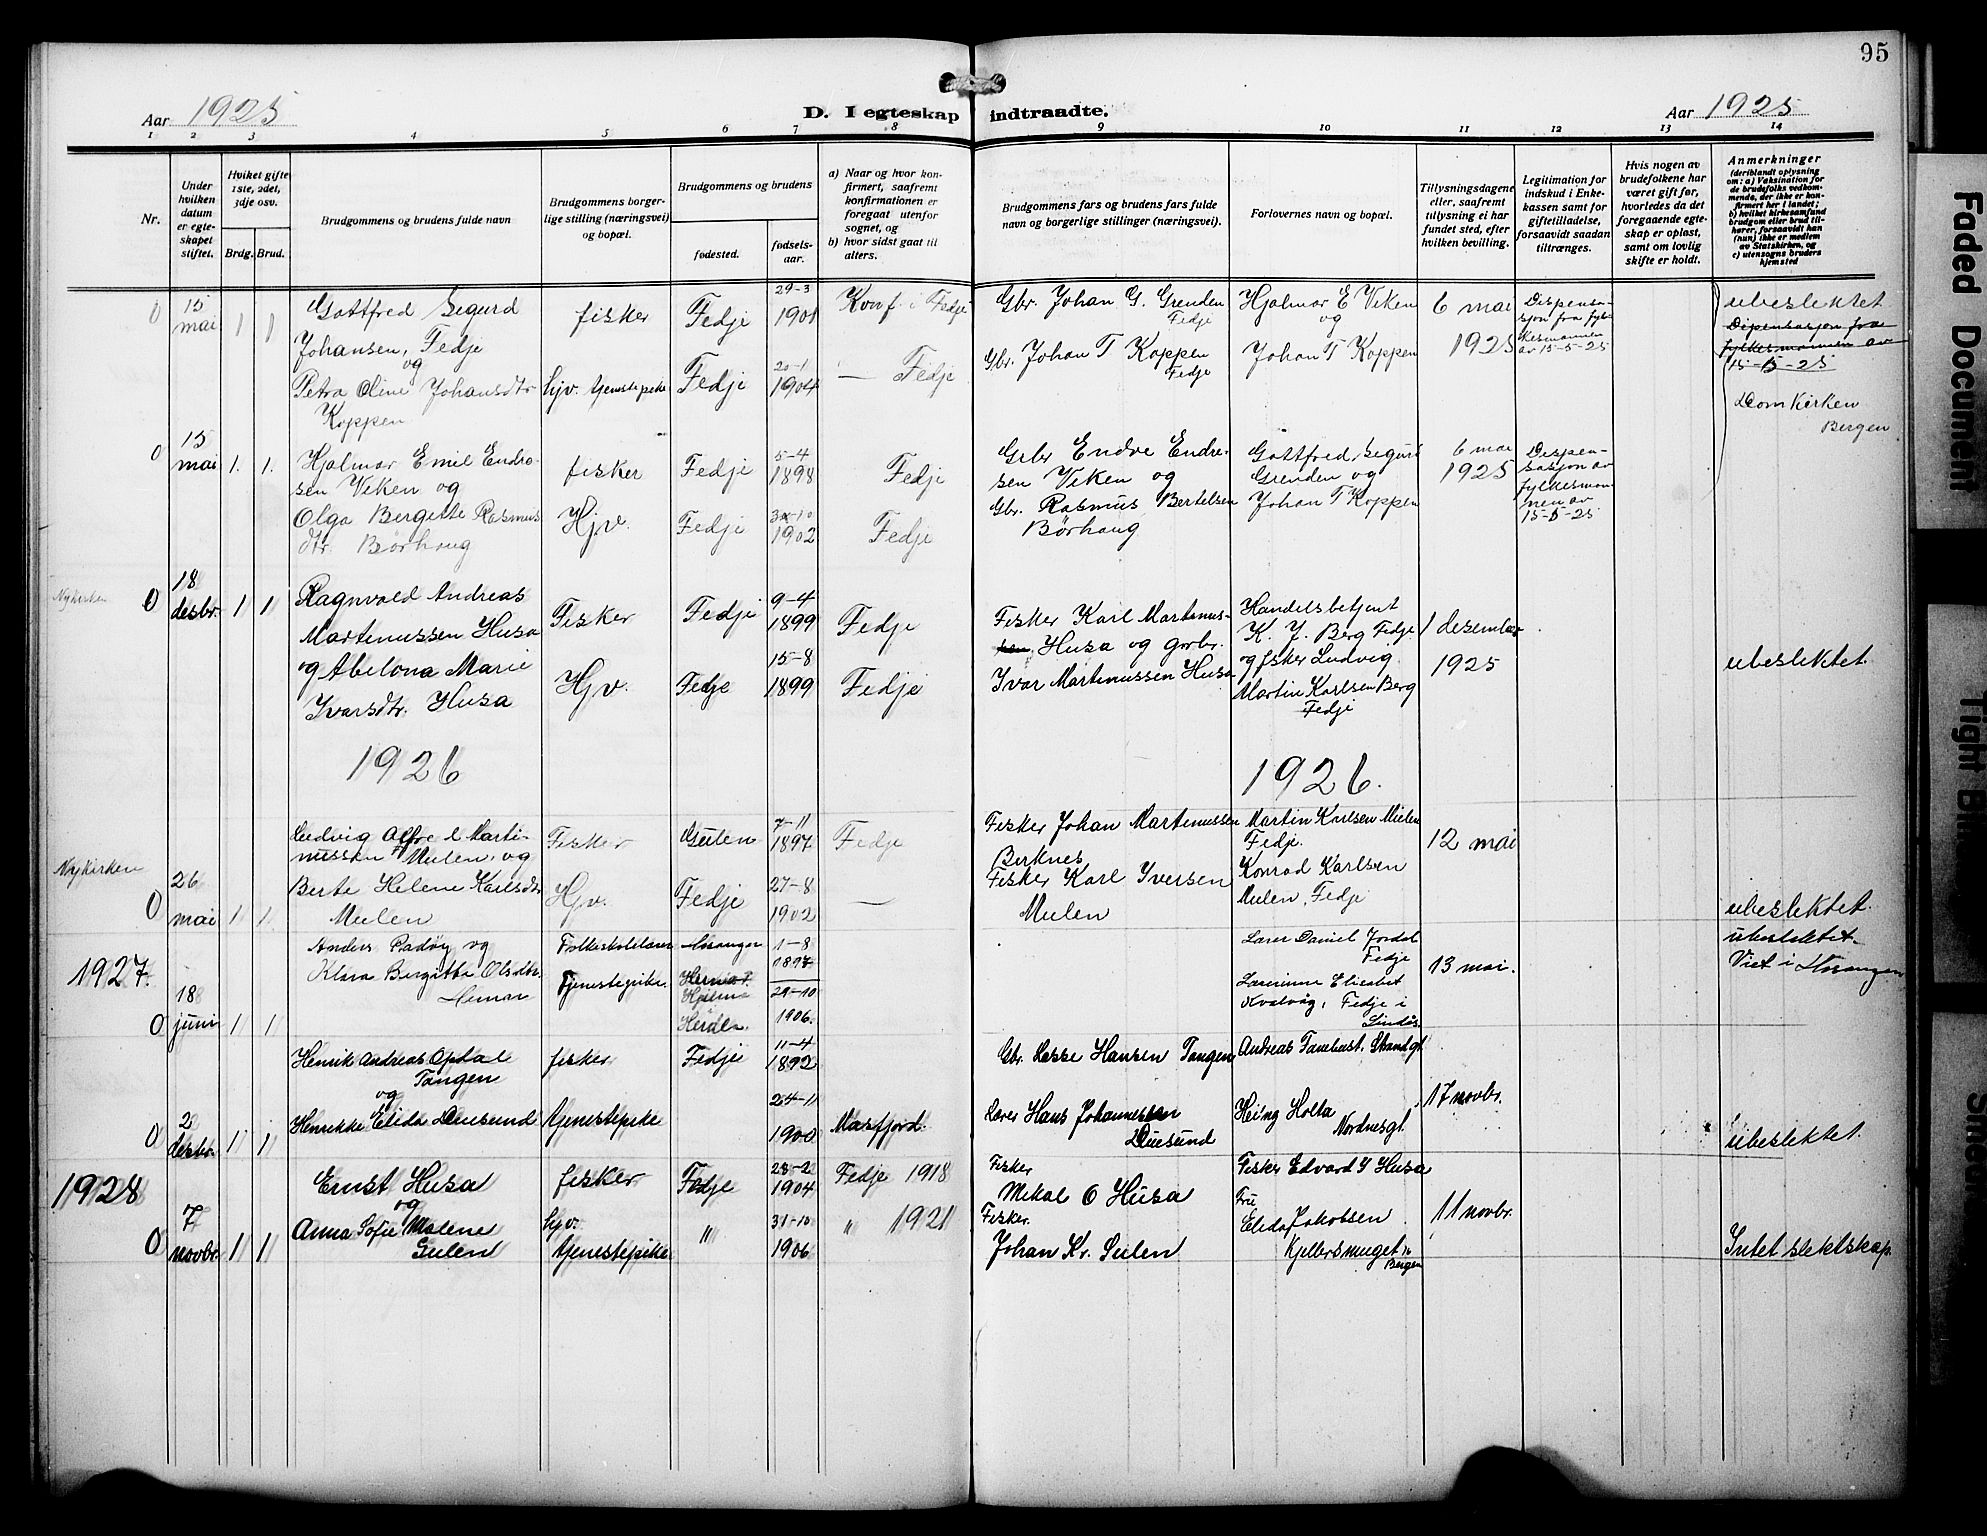 95
Aar 1925
D. I egteskap indtraadte.
Aar 1925
1 2 3 4 5 6 7 8 9 10 11 12 13 14
Nr.
Under hvilken datum er egteskapet stiftet.
Hviket gifte 1ste, 2det, 3dje osv.
Brdg. Brud.
Brudgommens og brudens fulde navn
Brudgommens borgerlige stilling (næringsvei) og bopæl.
Brudgommens og brudens
fødested.
fødselsaar.
a) Naar og hvor konfirmert, saafremt konfirmationen er foregaat utenfor sognet, og
b) hvor sidst gaat til alters.
Brudgommens fars og brudens fars fulde navn og borgerlige stillinger (næringsvei).
Forlovernes navn og bopæl.
Tillysningsdagene eller, saafremt tillysning ei har fundet sted, efter hvilken bevilling.
Legitimation for indskud i Enkekassen samt for giftetilladelse, forsaavidt saadan tiltrænges.
Hvis nogen av brudefolkene har været gift før, hvorledes da det foregaaende egteskap er oplast, samt om lovlig skifte er holdt.
Anmerkninger
(deriblandt oplysning om: a) Vaksination for de brudefolks vedkommende, der ikke er konfirmert her i landet; b) hvilket kirkesamfund brudgom eller brud tilhører, forsaavidt han (hun) ikke er medlem av Statskirken, og c) utensogns bruders hjemsted
0 15 mai 1 1
Gottfred Sigurd
Johansen, Fedje
og
Petra Oline Johansdtr
Koppen
fisker
hjv. tjenstepike
Fedje
Fedje
29-3
1901
20-1
1904
Konf. i Fedje
— Fedje
Gbr. Johan G. Grenden
Fedje
Gbr. Johan T Koppen
Fedje
Hjalmar E Viken
og
Johan T Koppen
6 mai
1925
Dispensasjon fra fylkesmannen av 15-5-25
ubeslektet
Dispensasjon fra
fylkesmannen av
15-5-25
Domkirken
Bergen
0 15 mai 1. 1.
Hjalmar Emil Endresen Viken og
Olga Bergitte Rasmusdtr. Børhaug
fisker
Hjv.
Fedje
Fedje
5-4
1898
1902
Fedje
Fedje
Grbr Endre Endresen Viken og
Gbr. Rasmus Bertelsen
Børhaug
Gottfred Sigurd
Grenden og
Johan T Koppen
6 mai
1925
Dispensasjon av fylkesmannen av 15-5-25
Nykirken
0 18 desbr. 1 1
Ragnvald Andreas
Martinussen Husa
og Abelona Marie
Ivarsdtr. Husa
Fisker
Hjv.
Fedje
Fedje
9-4
1899
15-8
1899
Fedje
Fedje
Fisker Karl Martinussen Husa og grbr.
Ivar Martinussen Husa
Handelsbetjent
K. J. Berg Fedje
og fisker Ludvig
Martin Karlsen Berg
Fedje
1 desember
1925
ubeslektet
1926
1926.
Nykirken
0 26 mai 1 1
Ludvig Alfred Martinussen Mulen, og
Berte Helene Karlsdtr
Mulen
Fisker
Hjv.
Gulen
Fedje
7-11
1897
27-8
1902
Fedje
—
Fisker Johan Martinussen
Berknes
Fisker Karl Iversen
Mulen
Martin Karlsen Mulen
Fedje.
Konrad Karlsen
Mulen, Fedje
12 mai
ubeslektet
1927.
0 18 juni 1 1
Anders Padøy og
Klara Bergitta Olsdtr.
Folkeskolelærer
Tjenestepike.
Herdla.
1-8
1897
29-10
1906.
Lærer Daniel Jordal
Fedje
Lærerinne Elisabet
Kvalvåg, Fedje i
Lindås.
13 mai.
ubeslektet.
Viet i
0 2 desbr. 1 1
Henrik Andreas Opdal
Tangen
og
Henrikke Elida Duesund
fisker
tjenestepike
Fedje
11-4
1892
24-11
1900
Masfjord.
Gbr. Lasse Hansen Tangen
Lærer Hans Johannessen
Duesund
Andreas Tanehast. Strandgt
Holta
Nordnesgt.
17 novbr.
ubeslektet.
1928
0 7 novbr. 1 1
Ernst Husa
og
Anna Sofie Malene
Gulen
fisker
hjv.
tjenestepike
Fedje
"
28-2
1904
31-10
1906
Fedje 1918
" 1921
Fisker
Mikal O Husa
Fisker.
Johan Kr. Gulen
Fisker Edvard I Husa
Fru
Elida Jakobsen
Bergen
11 novbr.
Intet slektskap
Faded Document
Tight Bin